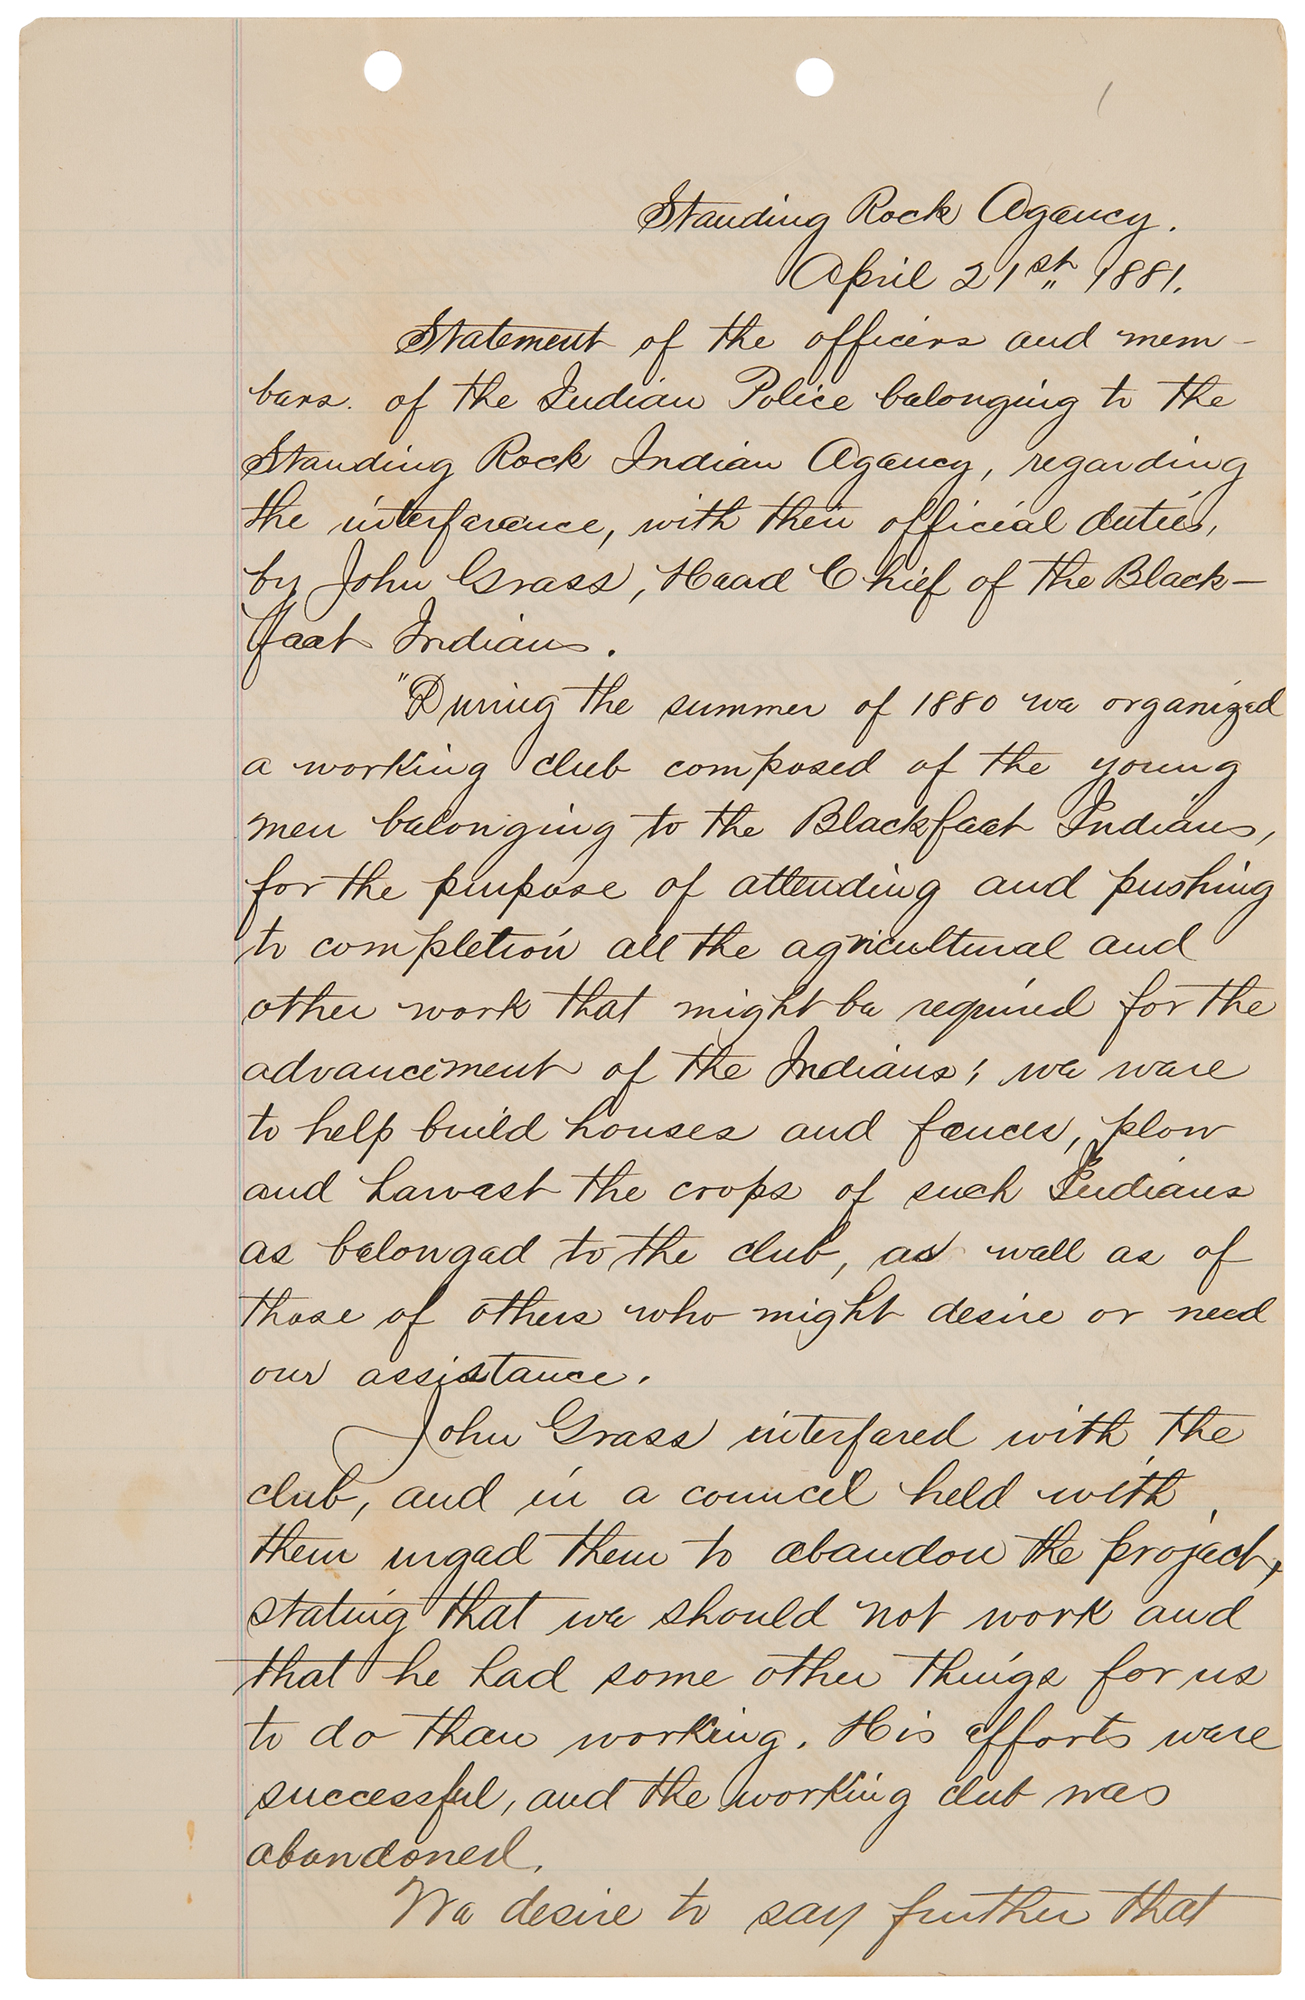 Standing Rock Agency.
April 21st 1881.
Statement of the officers and mem-
bers. of the Indian Police belonging to the
Standing Rock Indian Agency, regarding
the interference, with their official duties,
by John Grass, Head Chief of the Black-
feet Indians.
"During the summer of 1880 we organized
a working club composed of the young
men belonging to the Blackfeet Indians,
for the purpose of attending and pushing
to completion all the agricultural and
other work that might be required for the
advancement of the Indians; we were
to help build houses and fences, plow
and harvest the crops of such Indians
as belonged to the club, as well as of
those of others who might desire or need
our assistance.
John Grass interfered with the
club, and in a council held with
them urged them to abandon the project,
stating that we should not work and
that he had some other things for us
to do than working. His efforts were
successful, and the working club was
abandoned.
We desire to say further that